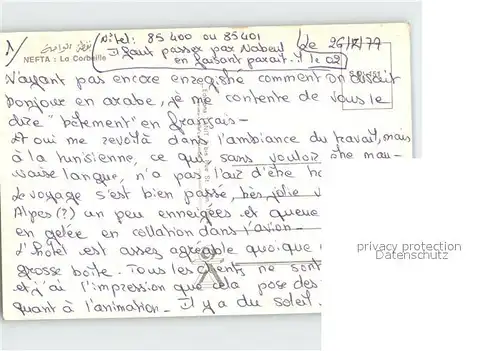 1)
نفطة الواحة
NEFTA : La Corbeille
(hôtel : 85 400 ou 85401
Il faut passer par Nabeul
en faisant paraît-il le 02
le 26/X/77
N'ayant pas encore enregistré comment on disait
bonjour en arabe, je me contente de vous le
dire "bêtement" en français -
Et oui me revoilà dans l'ambiance du travail, mais
à la tunisienne, ce qui, sans vouloir être mau-
vaise langue, n'a pas l'air d'être
Le voyage s'est bien passé, très jolie
Alpes (?) un peu enneigées et queue
en gelée en collation dans l'avion -
L'hôtel est assez agréable quoique
grosse boîte. Tous les clients ne sont
et j'ai l'impression que cela pose des
quant à l'animation - Il y a du soleil.
privacy protection
Datenschutz